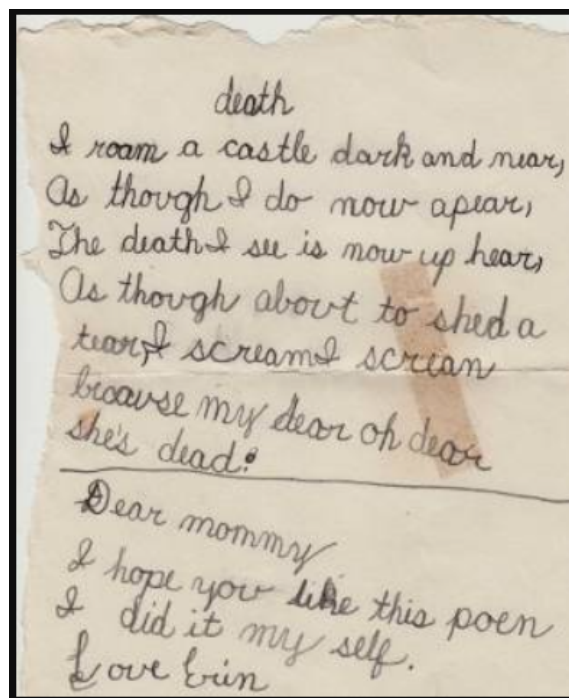 death
I roam a castle dark and near,
As though I do now apear,
The death I see is now up hear,
As though about to shed a
tear, I scream I scrian
because my dear oh dear
she's dead.
Dear mommy
I hope you like this poen
I did it my self.
Love Erin